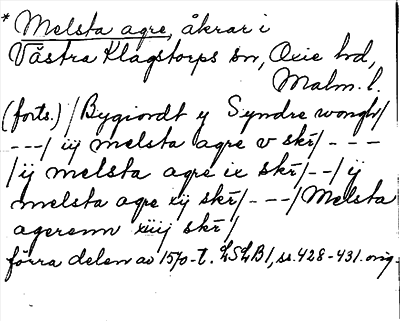 * Melsta agre, åkrar i
Västra Klagstorps sn, Oxie hd,
Malm. l.
(forts.) / Bygiordt y Syndre wongh /
--- / iij melsta agre v skr̃ / - - -
/ ij melsta agre ix skr̃ / -- / ij
melsta agre xij skr̃ / --- / Melsta
agerenn xiiij skr̃ /
förra delen av 1570-t. LSLB 1, ss. 428-431. orig.